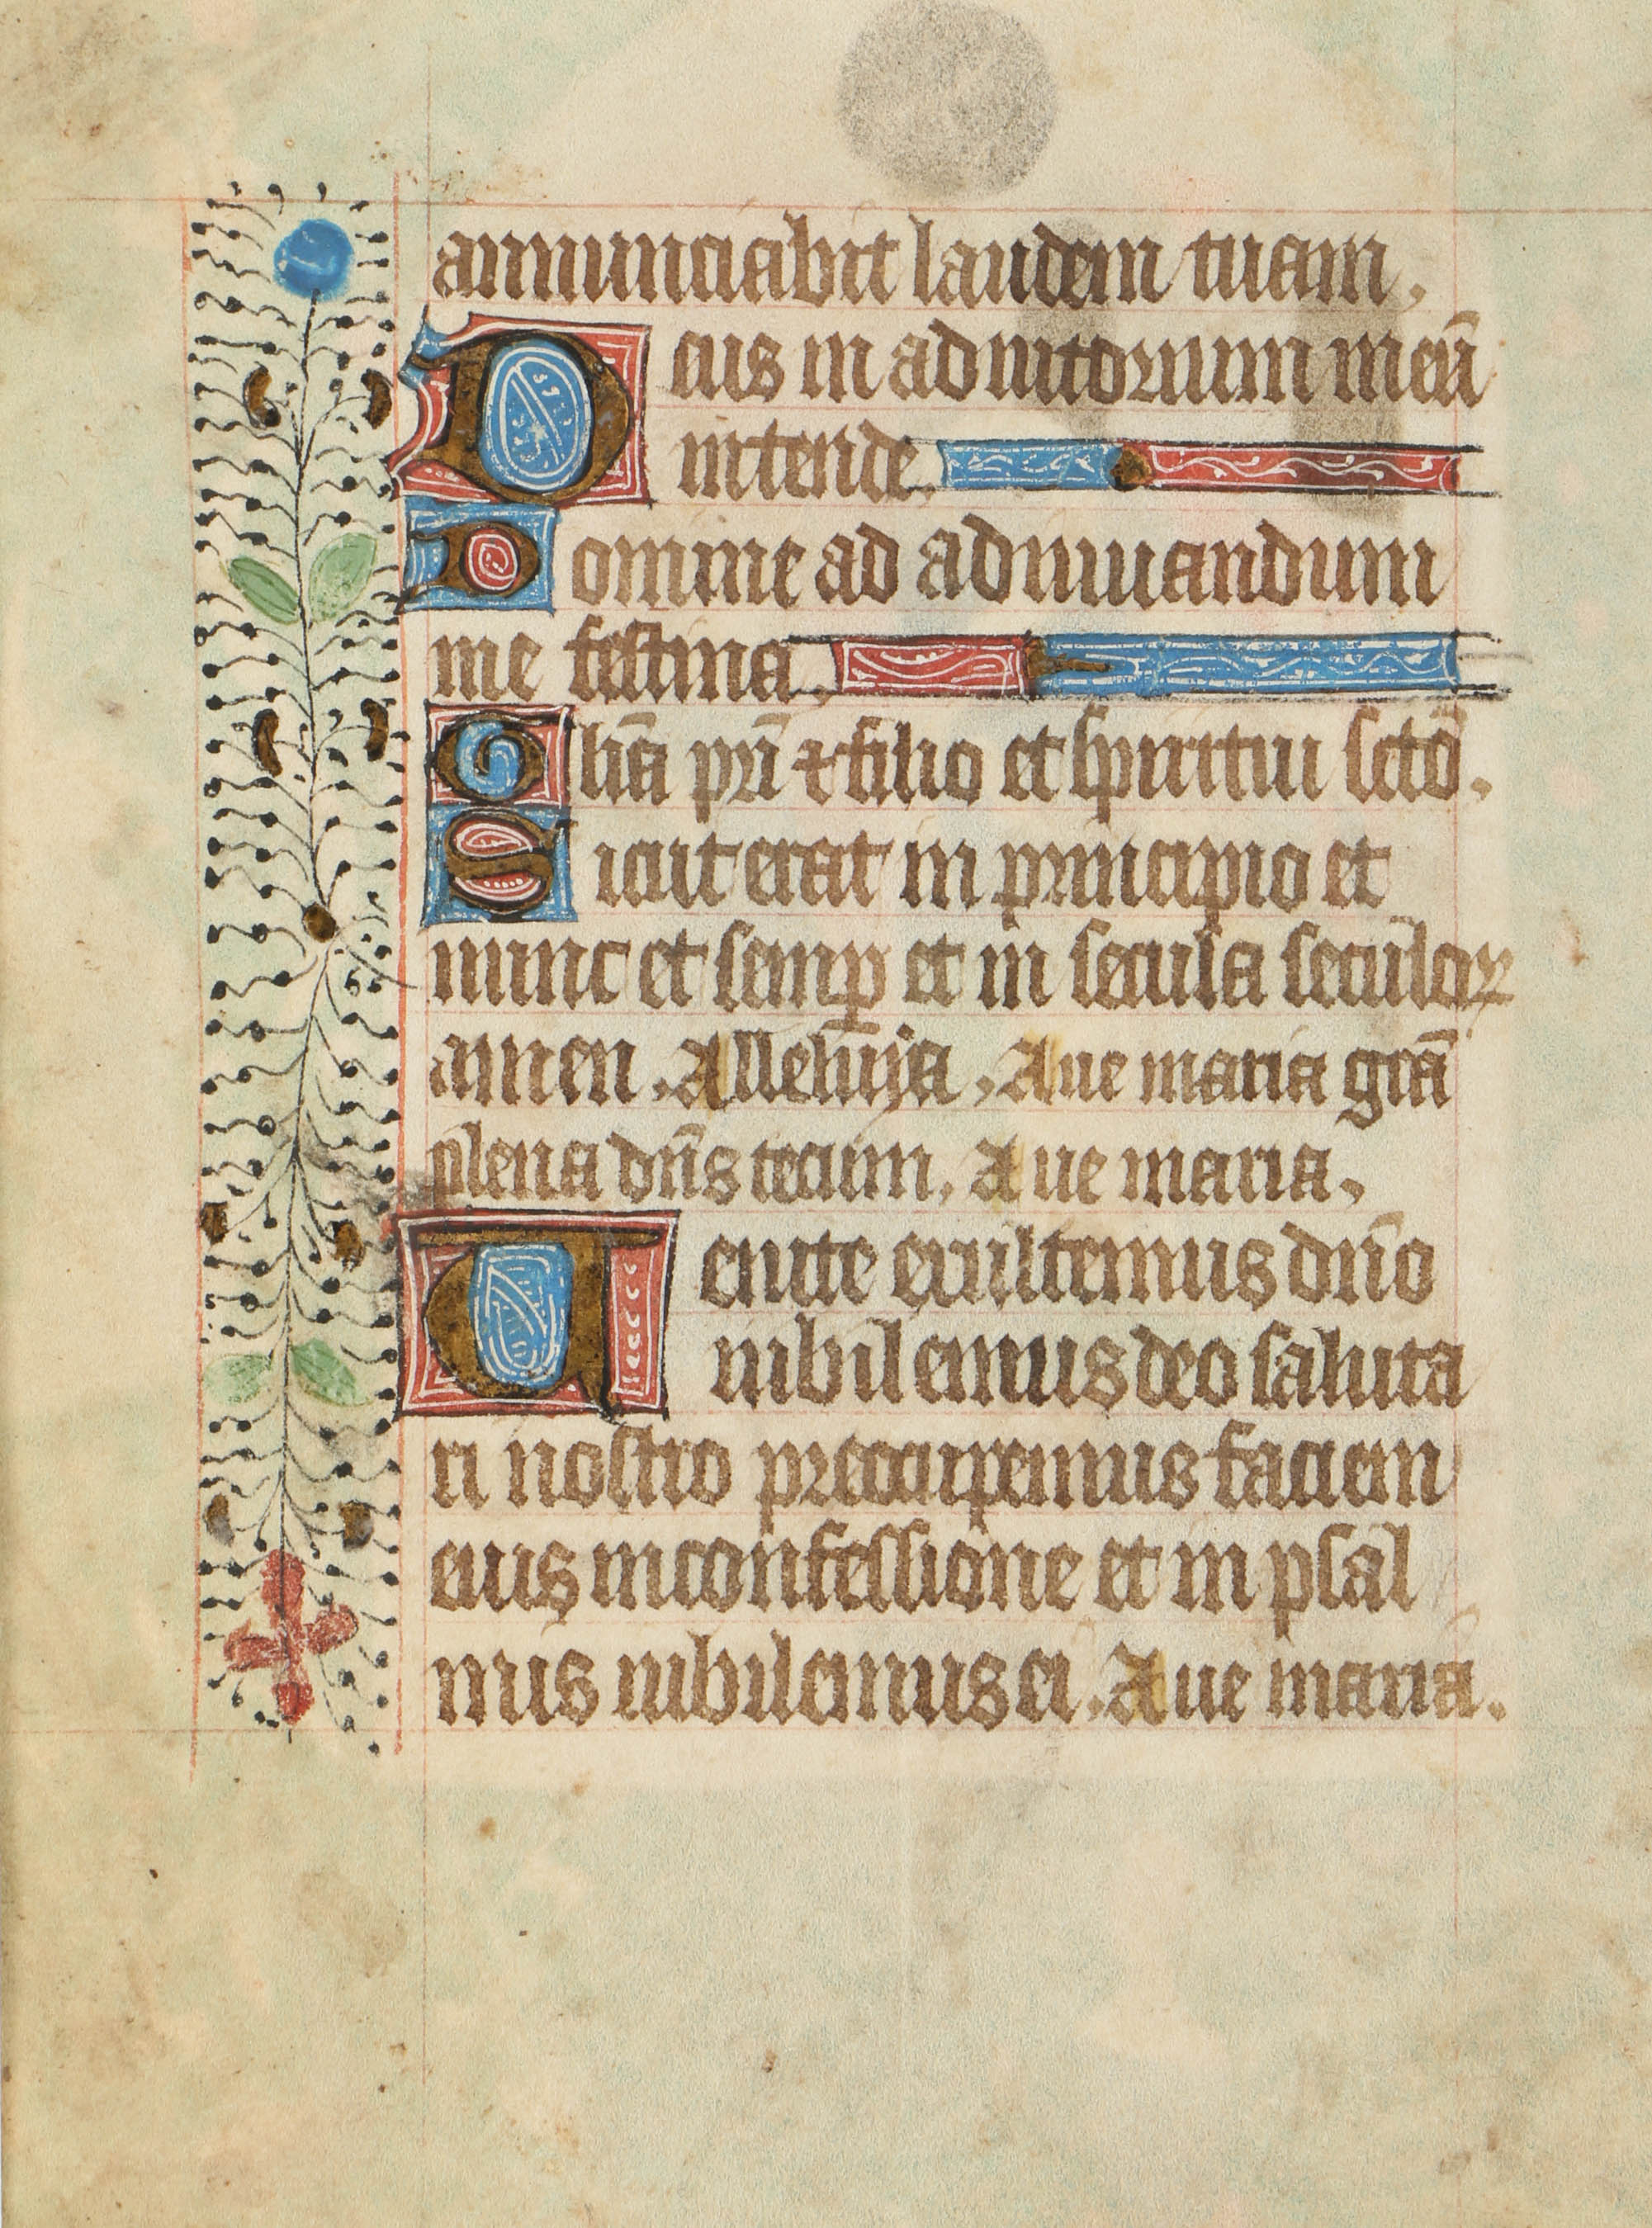 annunciabit laudem tuam.
Deus in adiutorium meū
intende.
Domine ad adiuuandum
me festina.
Glīa pr̄i ⁊ filio et spiritui sctō.
Sicut erat in principio et
nunc et semꝑ et in secula seculoꝝ
amen. Alleluȳa. Aue maria grā
plena dn̄s tecum. Aue maria.
Uenite exultemus dn̄o
iubilemus deo saluta
ri nostro preocupemus faciem
eius in confessione et in psal
mis iubilemus ei. Aue maria.